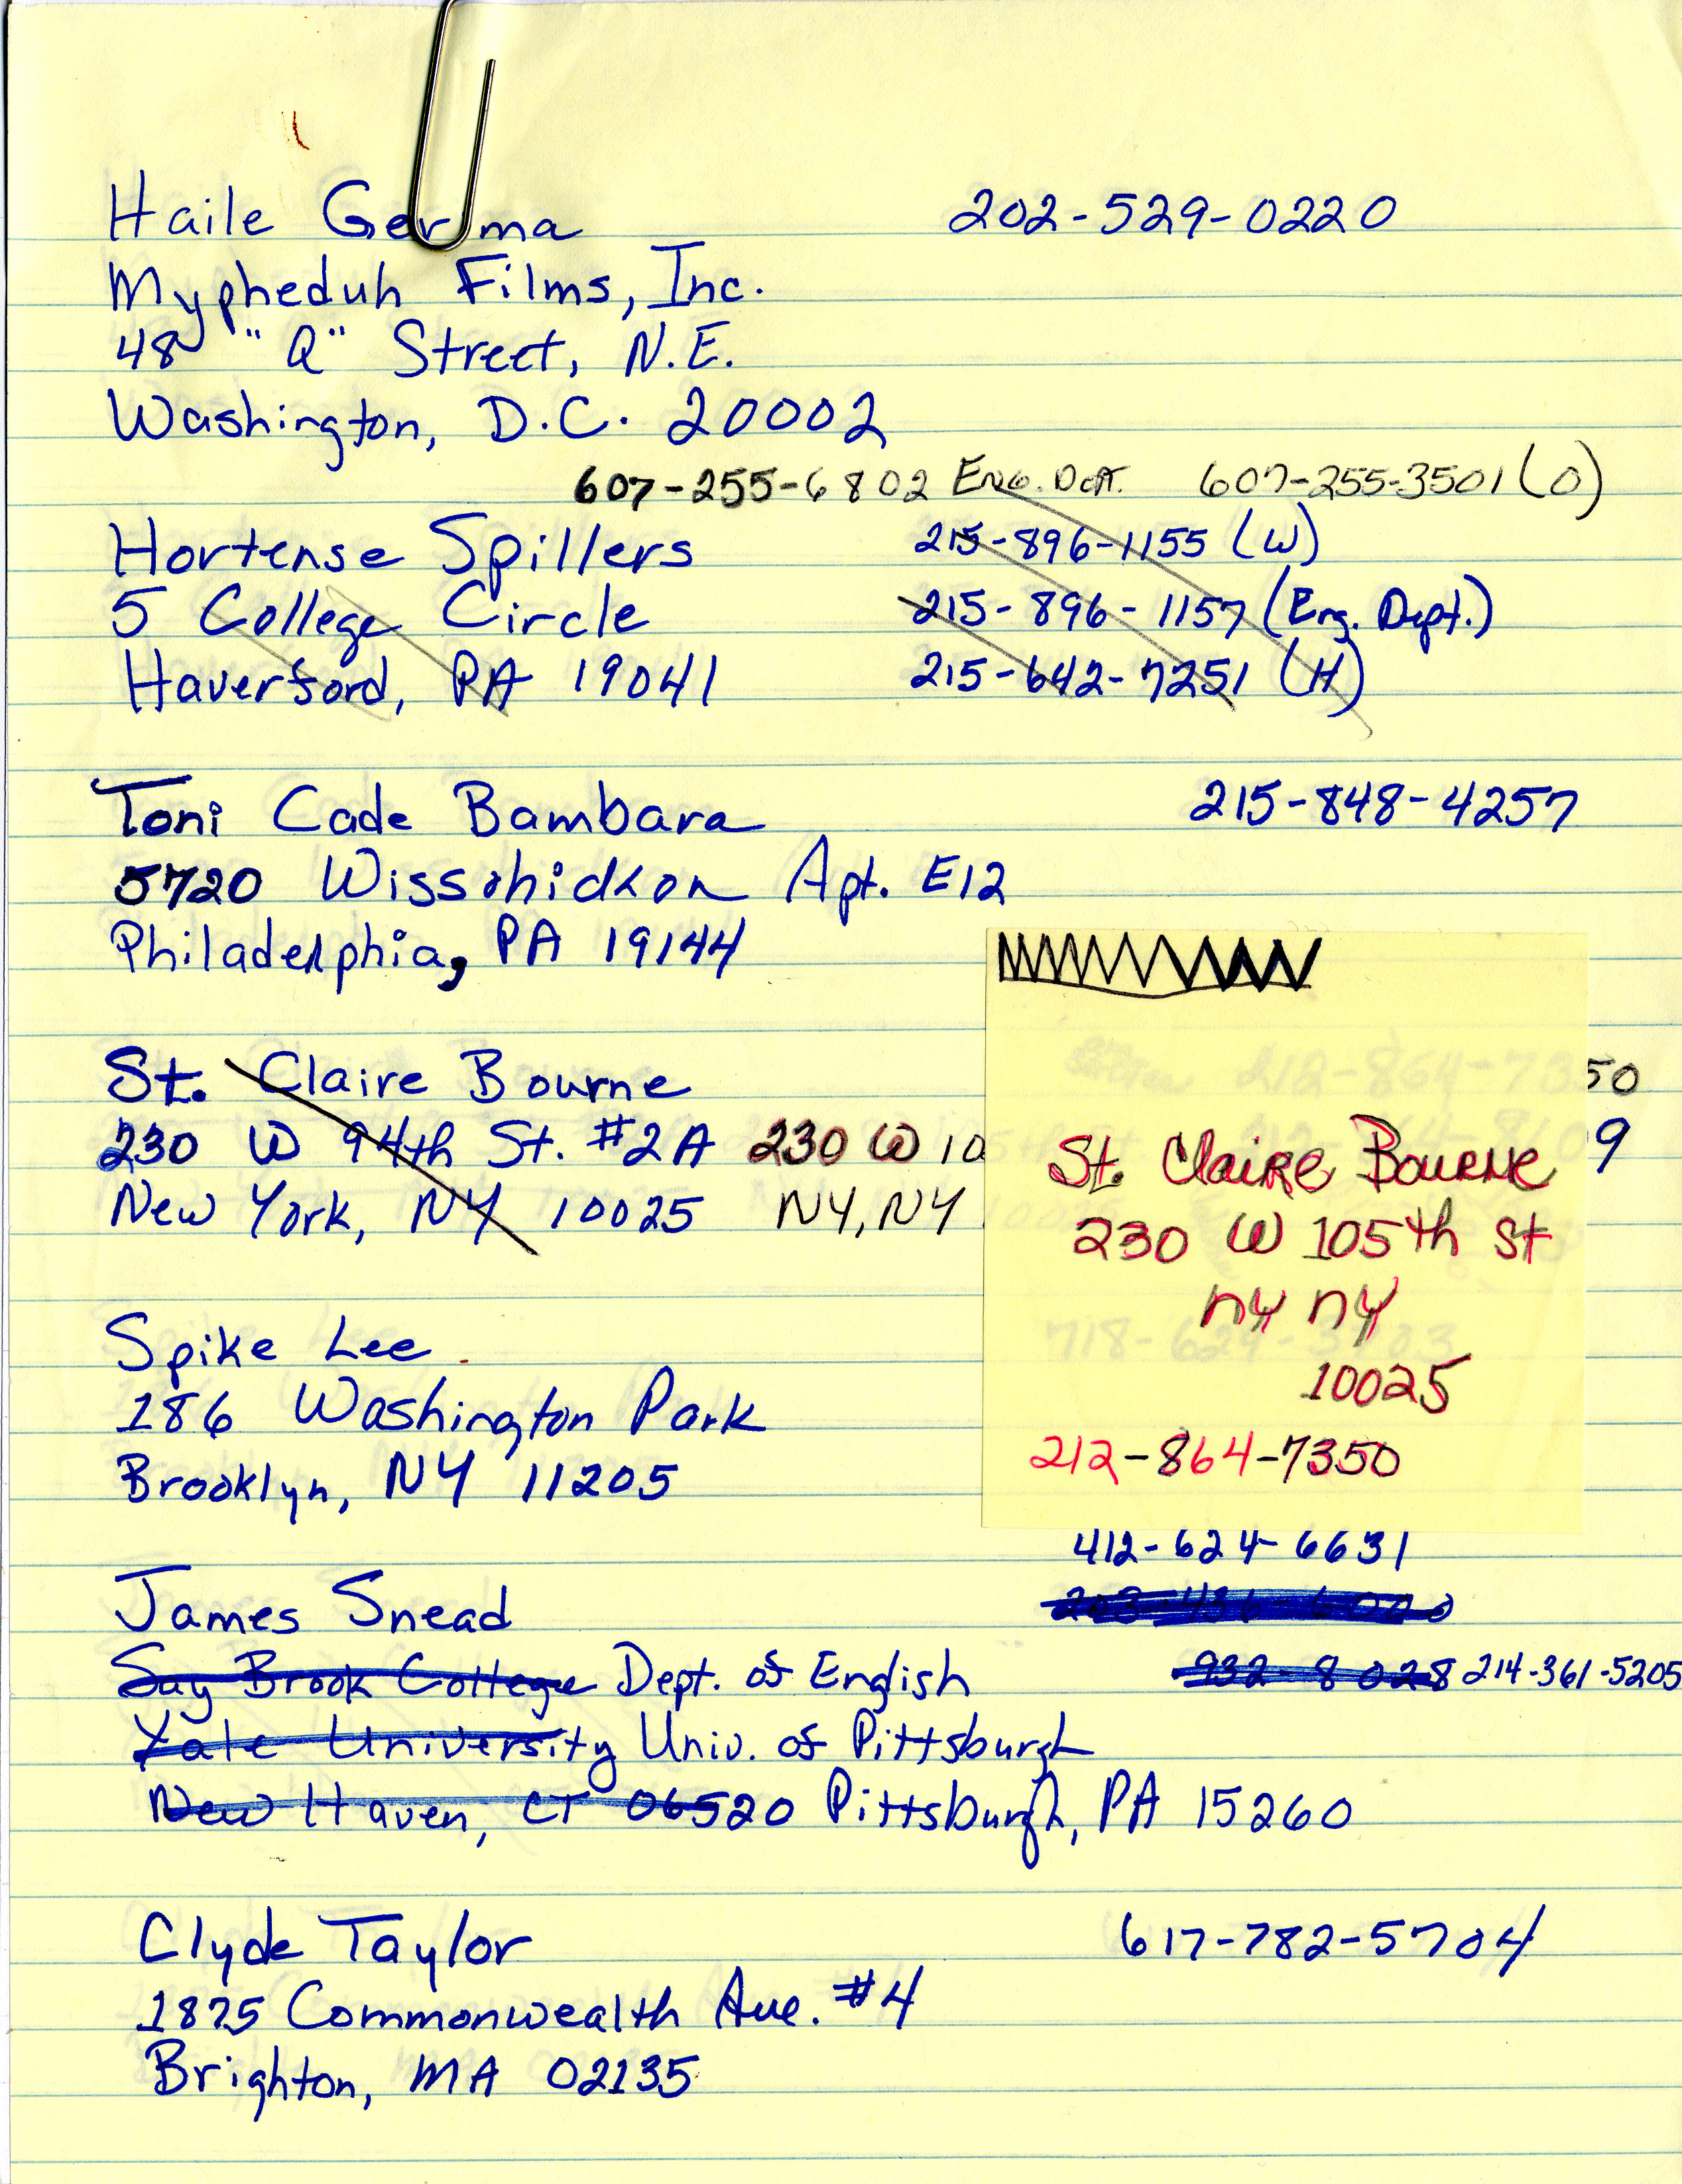 Haile Gerima 202-529-0220
Mypheduh Films, Inc.
48 "Q" Street, N.E.
Washington, D.C. 20002
607-255-6802 Eng. Dept. 607-255-3501 (O)
Hortense Spillers 215-896-1155 (W)
5 College Circle 215-896-1157 (Eng. Dept.)
Haverford, PA 19041 215-642-7251 (H)
Toni Cade Bambara 215-848-4257
5720 Wissahickon Apt. E12
Philadelphia, PA 19144
St. Claire Bourne 50
230 W 94th St. #2A 230 W 10 9
New York, NY 10025 NY, NY
St. Claire Bourne
230 W 105th St
NY NY
10025
212-864-7350
Spike Lee
186 Washington Park
Brooklyn, NY 11205
412-624-6631
James Snead 203-436-
Say Brook College Dept. of English 932-8028 214-361-5205
Yale University Univ. of Pittsburgh
New Haven, CT 06520 Pittsburgh, PA 15260
Clyde Taylor 617-782-5704
1825 Commonwealth Ave. #4
Brighton, MA 02135